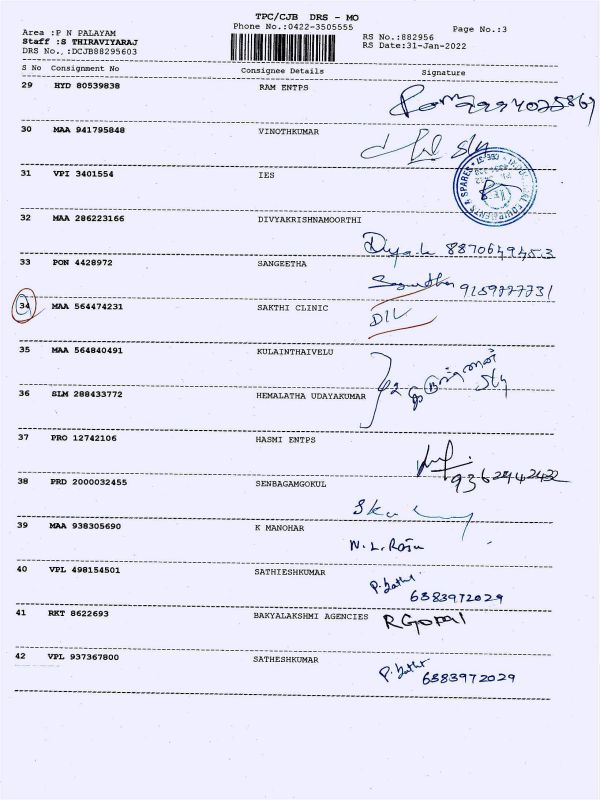 TPC/CJB DRS - MO
Phone No.:0422-3505555
Page No.:3
Area :P N PALAYAM
Staff :S THIRAVIYARAJ
DRS No.,:DCJB88295603
RS No.:882956
RS Date:31-Jan-2022
S No Consignment No Consignee Details Signature
29 HYD 80539838 RAM ENTPS
30 MAA 941795848 VINOTHKUMAR
31 VPI 3401554 IES
32 MAA 286223166 DIVYAKRISHNAMOORTHI
8870694953
33 PON 4428972 SANGEETHA
9159777731
34 MAA 564474231 SAKTHI CLINIC
DIL
35 MAA 564840491 KULAINTHAIVELU
36 SLM 288433772 HEMALATHA UDAYAKUMAR
37 PRO 12742106 HASMI ENTPS
9362942422
38 PRD 2000032455 SENBAGAMGOKUL
39 MAA 938305690 K MANOHAR
N. L. Raju
40 VPL 498154501 SATHIESHKUMAR
6383972029
41 RKT 8622693 BAKYALAKSHMI AGENCIES
R Gopal
42 VPL 937367800 SATHESHKUMAR
6383972029